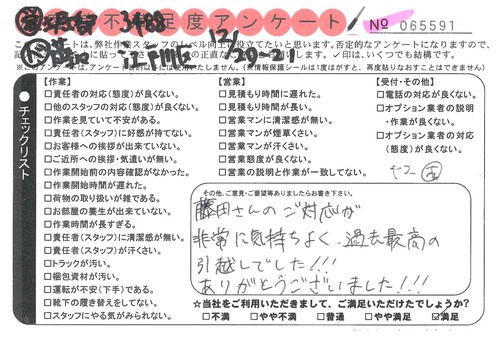 不満足度アンケート № 065591
12/20-21
このアンケートは、弊社作業スタッフのレベル向上に役立てたいと思います。否定的なアンケートになりますので、
✓印は、いくつでも結構です。
チェックリスト
【作業】
□責任者の対応(態度)が良くない。
□他のスタッフの対応(態度)が良くない。
□作業を見ていて不安がある。
□責任者(スタッフ)に好感が持てない。
□お客様への挨拶が出来ていない。
□ご近所への挨拶・気遣いが無い。
□作業開始前の内容確認がなかった。
□作業開始時間が遅れた。
□荷物の取り扱いが雑である。
□お部屋の養生が出来ていない。
□作業時間が長すぎる。
□責任者(スタッフ)に清潔感が無い。
□責任者(スタッフ)が汗くさい。
□トラックが汚い。
□梱包資材が汚い。
□運転が不安(下手)である。
□靴下の履き替えをしてない。
□スタッフにやる気がみられない。
【営業】
□見積もり時間に遅れた。
□見積もり時間が長い。
□営業マンに清潔感が無い。
□営業マンが煙草くさい。
□営業マンが汗くさい。
□営業態度が良くない。
□営業の説明と作業が一致してない。
【受付・その他】
□電話の対応が良くない。
□オプション業者の説明
・作業が良くない。
□オプション業者の対応
(態度)が良くない。
その他、ご意見・ご要望等ありましたらお書き下さい。
藤田さんのご対応が
非常に気持ちよく、過去最高の
引越しでした!!!
ありがとうございました!!!
☆当社をご利用いただきまして、ご満足いただけたでしょうか?
□不満 □やや不満 □普通 □やや満足 ☑満足